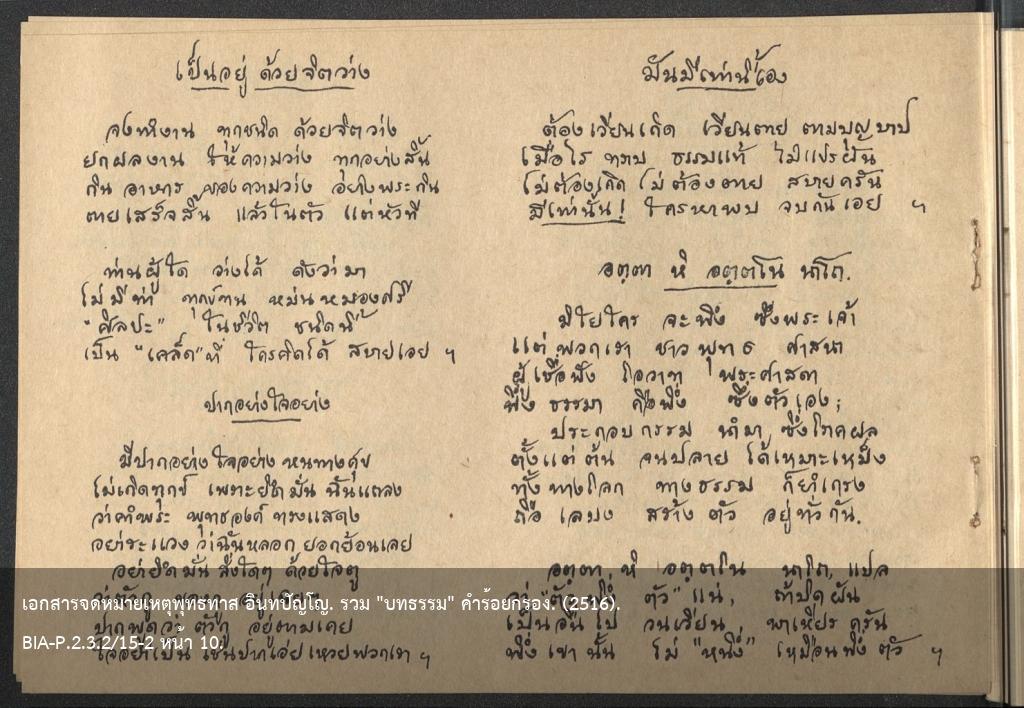 เป็นอยู่ ด้วยจิตว่าง
จงทำงาน ทุกชนิด ด้วยจิตว่าง
ยกผลงาน ให้ความว่าง ทุกอย่างสิ้น
กิน อาหาร ของความว่าง อย่างพระกิน
ตายเสร็จสิ้น แล้วในตัว แต่หัวที
ท่านผู้ใด ว่างได้ ดังว่ามา
ไม่มีท่า ทุกข์ทน หม่นหมองศรี
"ศิลปะ" ในชีวิต ชนิดนี้
เป็น "เคล็ด" ที่ ใครคิดได้ สบายเอย ฯ
ปากอย่างใจอย่าง
มีปากอย่าง ใจอย่าง หนทางสุข
ไม่เกิดทุกข์ เพราะยึดมั่น นั้นแถลง
ว่าคำพระ พุทธองค์ ทรงแสดง
อย่าระแวง ว่าฉันหลอก ยอกย้อนเลย
อย่ายึดมั่น สิ่งใดๆ ด้วยใจตู
ว่าตัวกู ของกู
ปากพูดว่า ตัวกู อยู่ตามเคย
ใจอย่าเป็น เช่นปากเอ่ย เหวยพวกเรา ฯ
มันมีเท่านี้เอง
ต้องเวียนเกิด เวียนตาย ตามบุญบาป
เมื่อไร ทราบ ธรรมแท้ ไม่แปรผัน
ไม่ต้องเกิด ไม่ต้องตาย สบายครัน
มีเท่านั้น! ใครหาพบ จบกันเอย ฯ
อตฺตา หิ อตฺตโน นาโถ.
มิใยใคร จะพึ่ง ซึ่งพระเจ้า
แต่พวกเรา ชาวพุทธ ศาสนา
ผู้เชื่อฟัง ถือวาท พระศาสดา
พึ่งธรรมา คือพึ่ง ซึ่งตัวเอง;
ประกอบกรรม นำมา ซึ่งโภคผล
ตั้งแต่ต้น จนปลาย ได้เหมาะเหม็ง
ทั้งทางโลก ทางธรรม ก็ยำเกรง
ถือ เลบง สร้าง ตัว อยู่ทั่วกัน.
อตฺตา หิ อตฺตโน นาโถ, แปล
ว่า "ตัวพึ่ง ตัว" แน่, ถ้าบิดผัน
เป็นอื่นไป วนเวียน, พาเหียร ครัน
พึ่งเขานั้น ไม่ "หนึ่ง" เหมือนพึ่งตัว ฯ
เอกสารจดหมายเหตุพุทธทาส อินทปัญโญ. รวม "บทธรรม" คำร้อยกรอง. (2516).
BIA-P.2.3.2/15-2 หน้า 10.